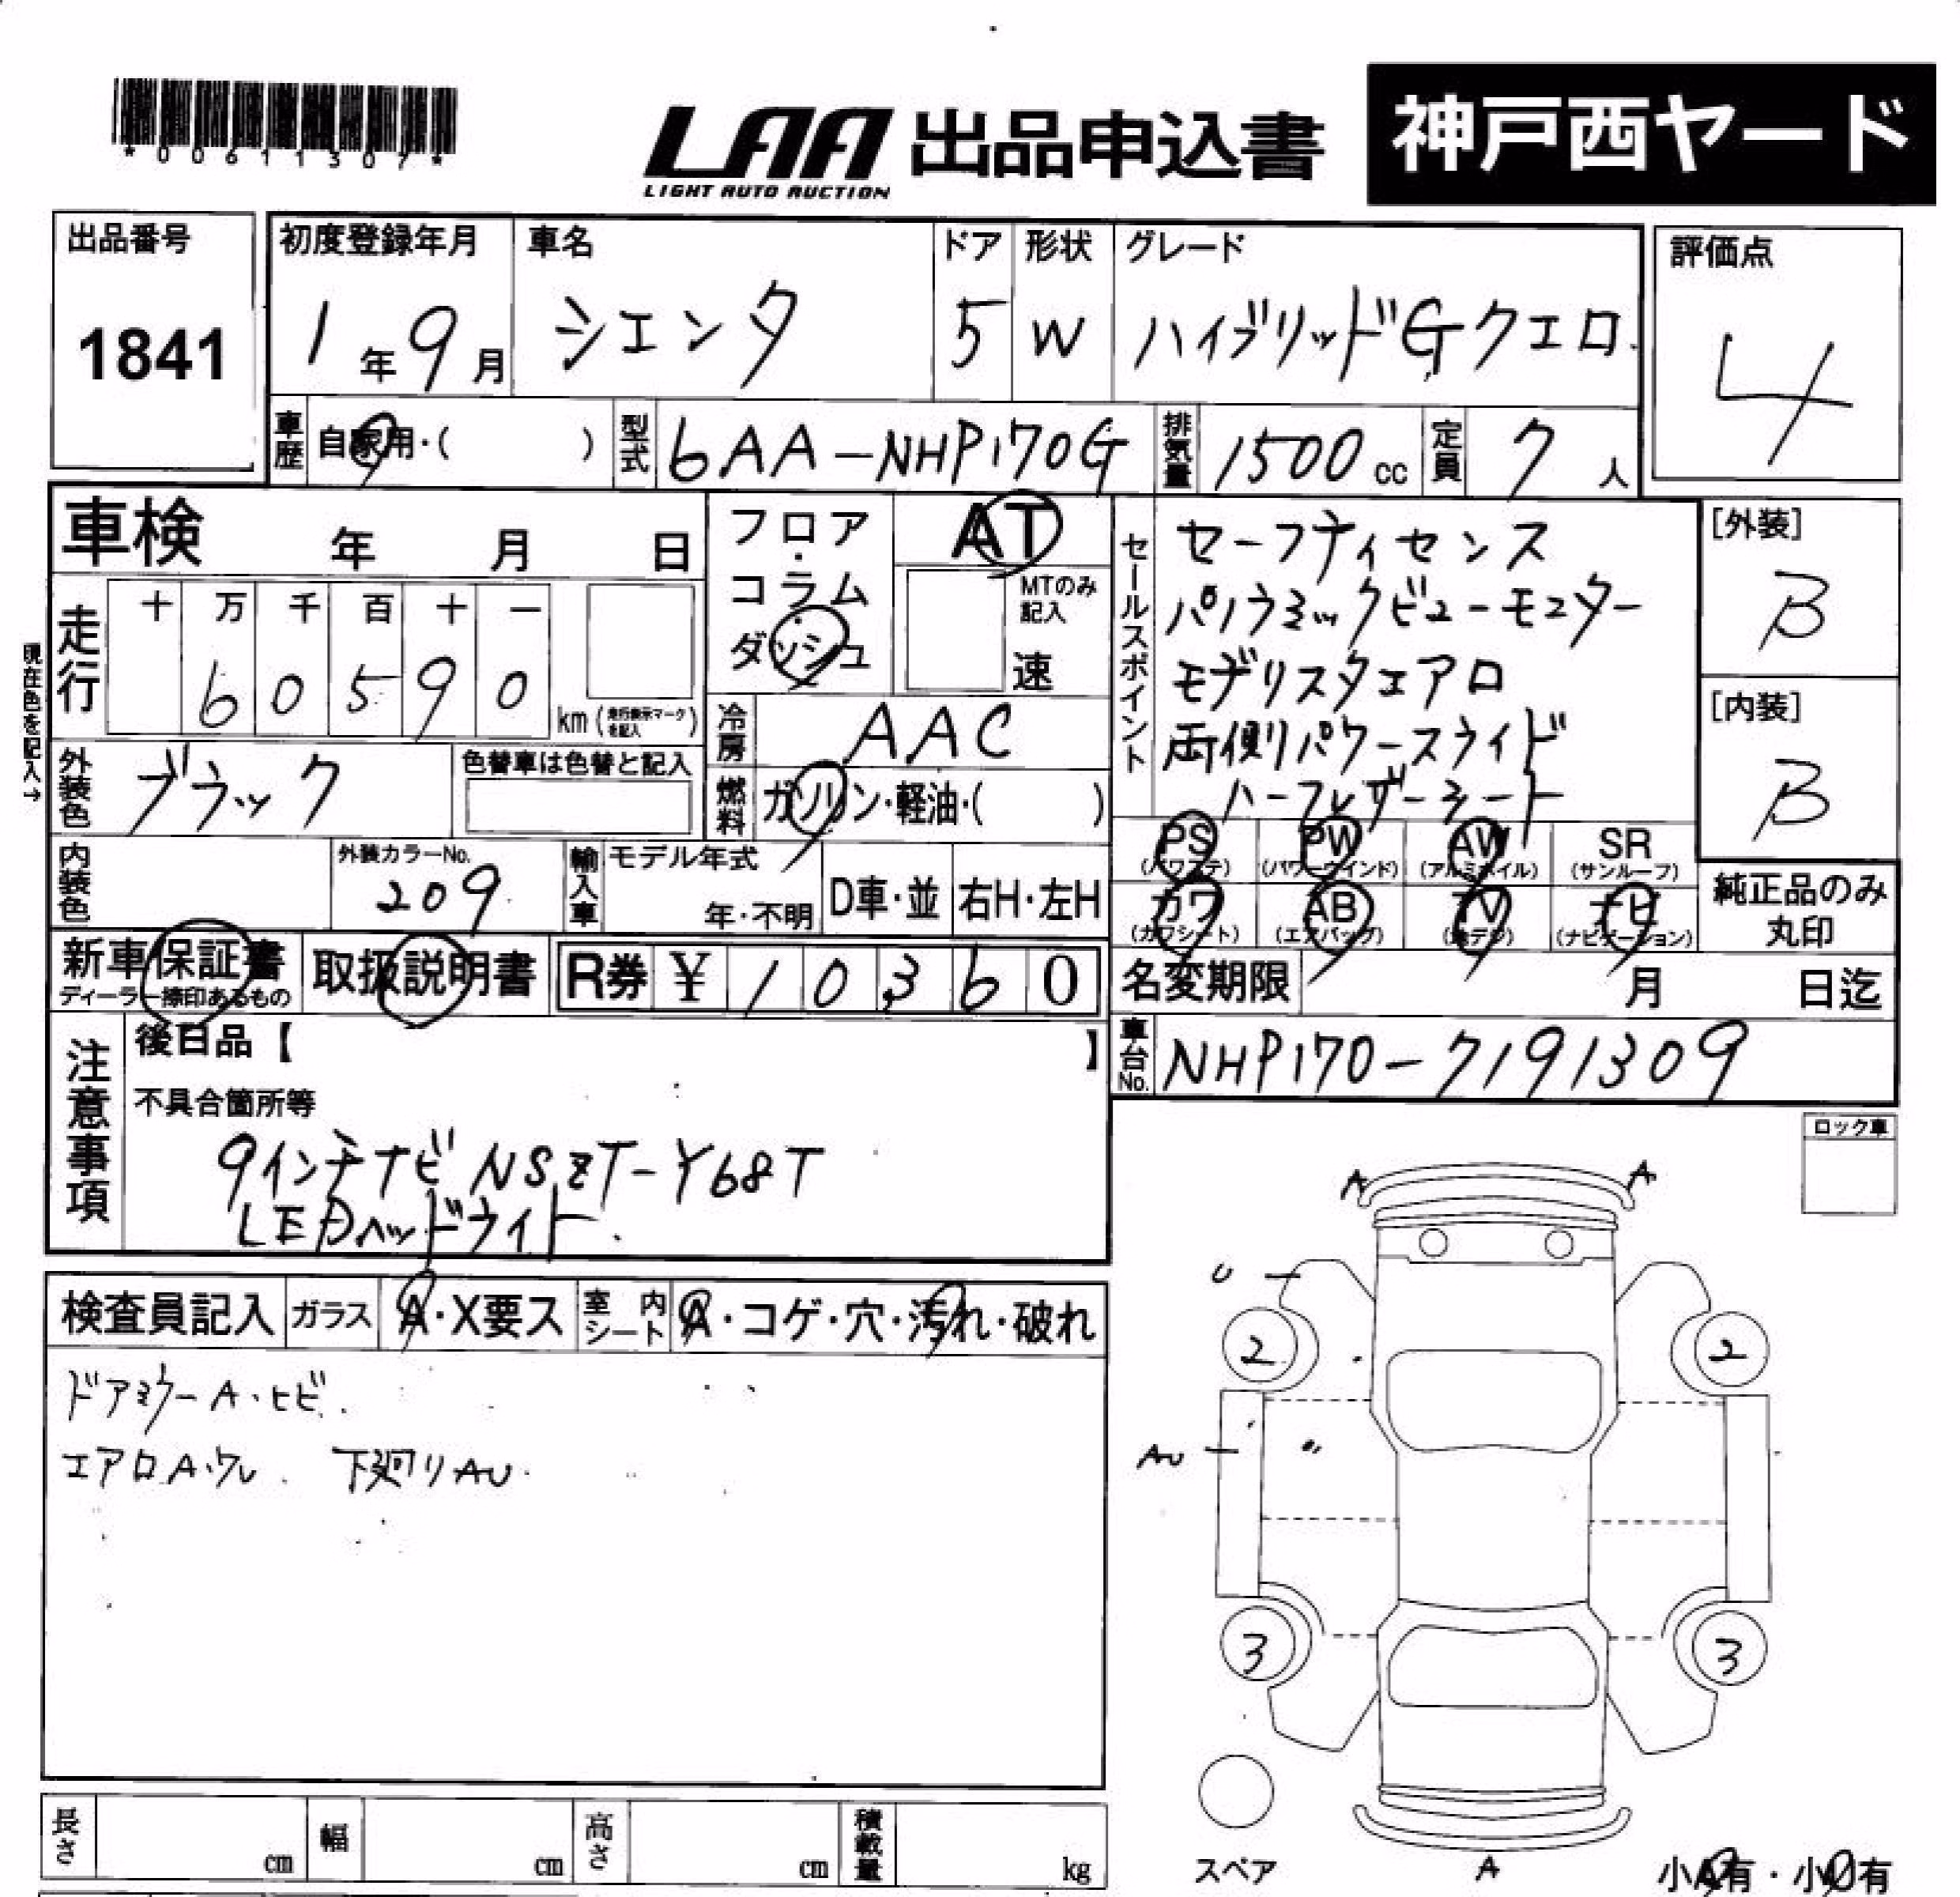 *00611307*
LAA 出品申込書 神戸西ヤード
LIGHT AUTO AUCTION
出品番号
1841
初度登録年月
1年9月
車名
シエンタ
ドア
5
形状
W
グレード
ハイブリッドGクエロ
評価点
4
車歴 自家用・( )
型式 6AA-NHP170G
排気量 1500cc
定員 7人
車検 年 月 日
走行
十 万 千 百 十 一
6 0 5 9 0
km(走行表示マークを記入)
現在色を記入→
フロア・コラム・ダッシュ
AT
MTのみ記入
速
冷房 AAC
燃料 ガソリン・軽油・( )
セールスポイント
セーフティセンス
パノラミックビューモニター
モデリスタエアロ
両側パワースライド
ハーフレザーシート
[外装]
B
[内装]
B
外装色 ブラック
色替車は色替と記入
内装色
外装カラーNo.
209
輸入車
モデル年式
年・不明
D車・並
右H・左H
PS
(パワステ)
PW
(パワーウインド)
AW
(アルミホイル)
SR
(サンルーフ)
カワ
(カワシート)
AB
(エアバッグ)
TV
(地デジ)
ナビ
(ナビゲーション)
純正品のみ
丸印
新車保証書
ディーラー捺印あるもの
取扱説明書
R券 ¥ 10360
名変期限 月 日迄
車台No. NHP170-7191309
注意事項
後日品【 】
不具合箇所等
9インチナビ NSZT-Y68T
LEDヘッドライト.
ロック車
検査員記入
ガラス A・X要ス
室内シート A・コゲ・穴・汚れ・破れ
ドアミラーA・ヒビ.
エアロA・ワレ. 下廻りAU.
A A
U
2 2
AU "
3 3
スペア
A
小A有・小U有
長さ cm
幅 cm
高さ cm
積載量 kg